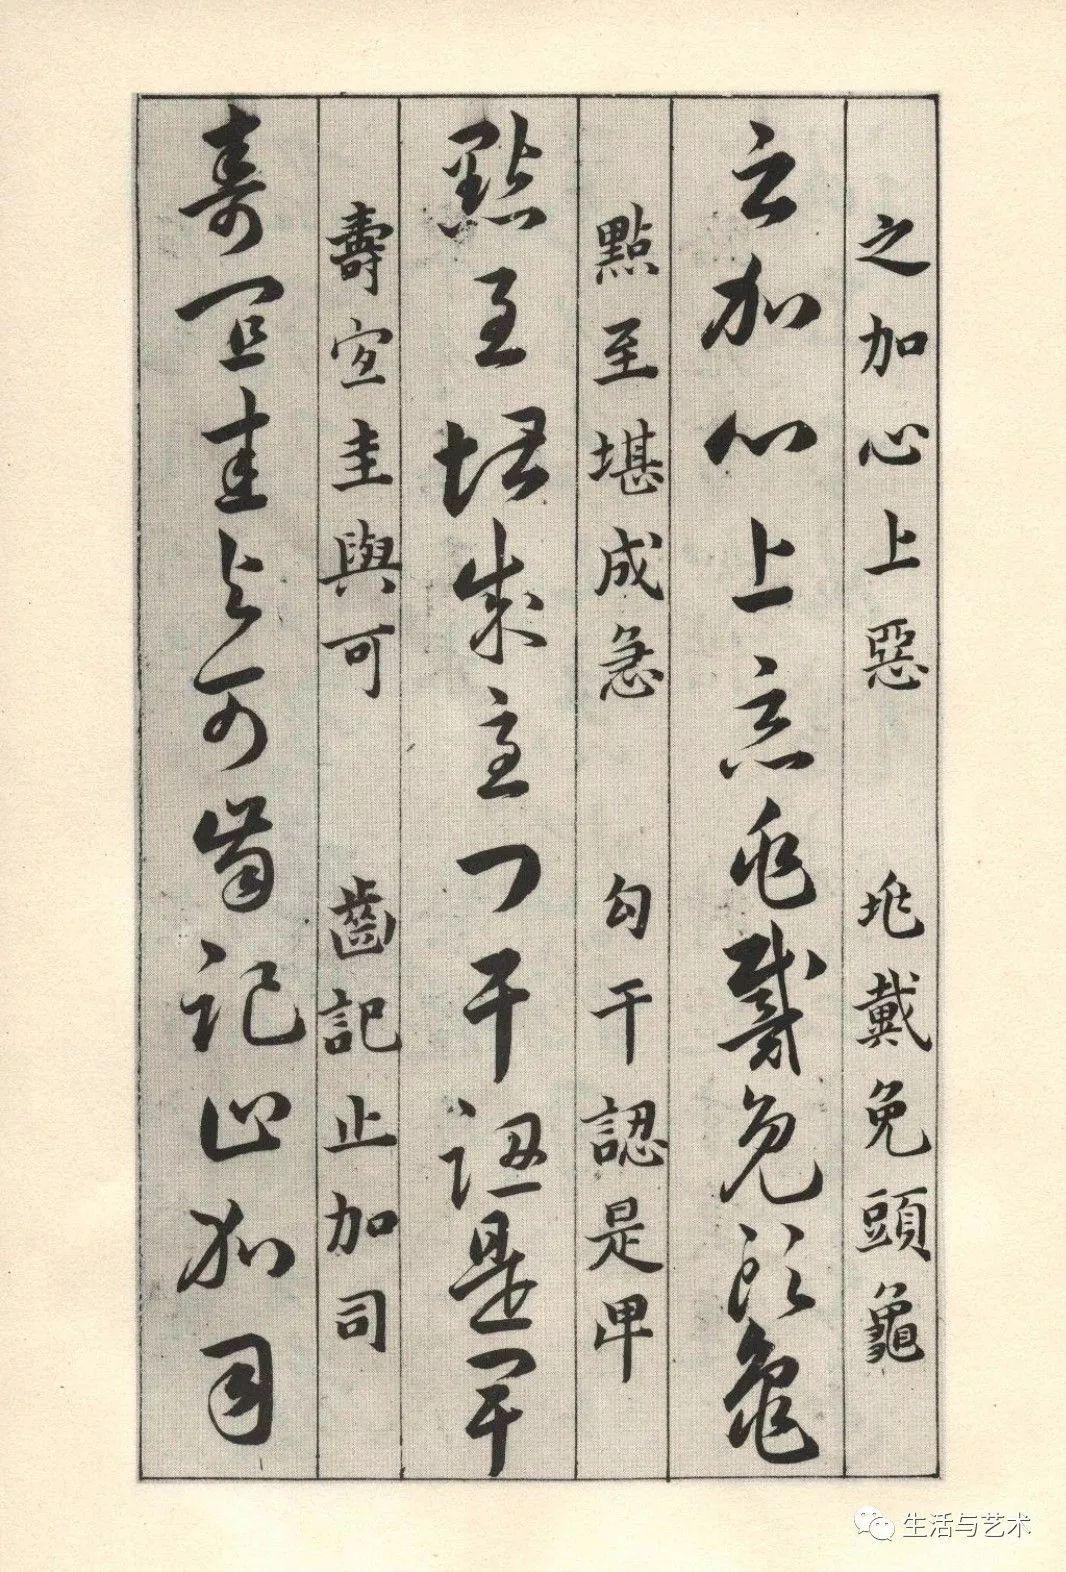 之加心上惡　兆戴免頭龜
之加心上惡兆戴免頭龜
點至堪成急　勾干認是卑
點至堪成急勾干認是卑
壽宜圭與可　齒記止加司
壽宜圭與可齒記止加司
生活与艺术